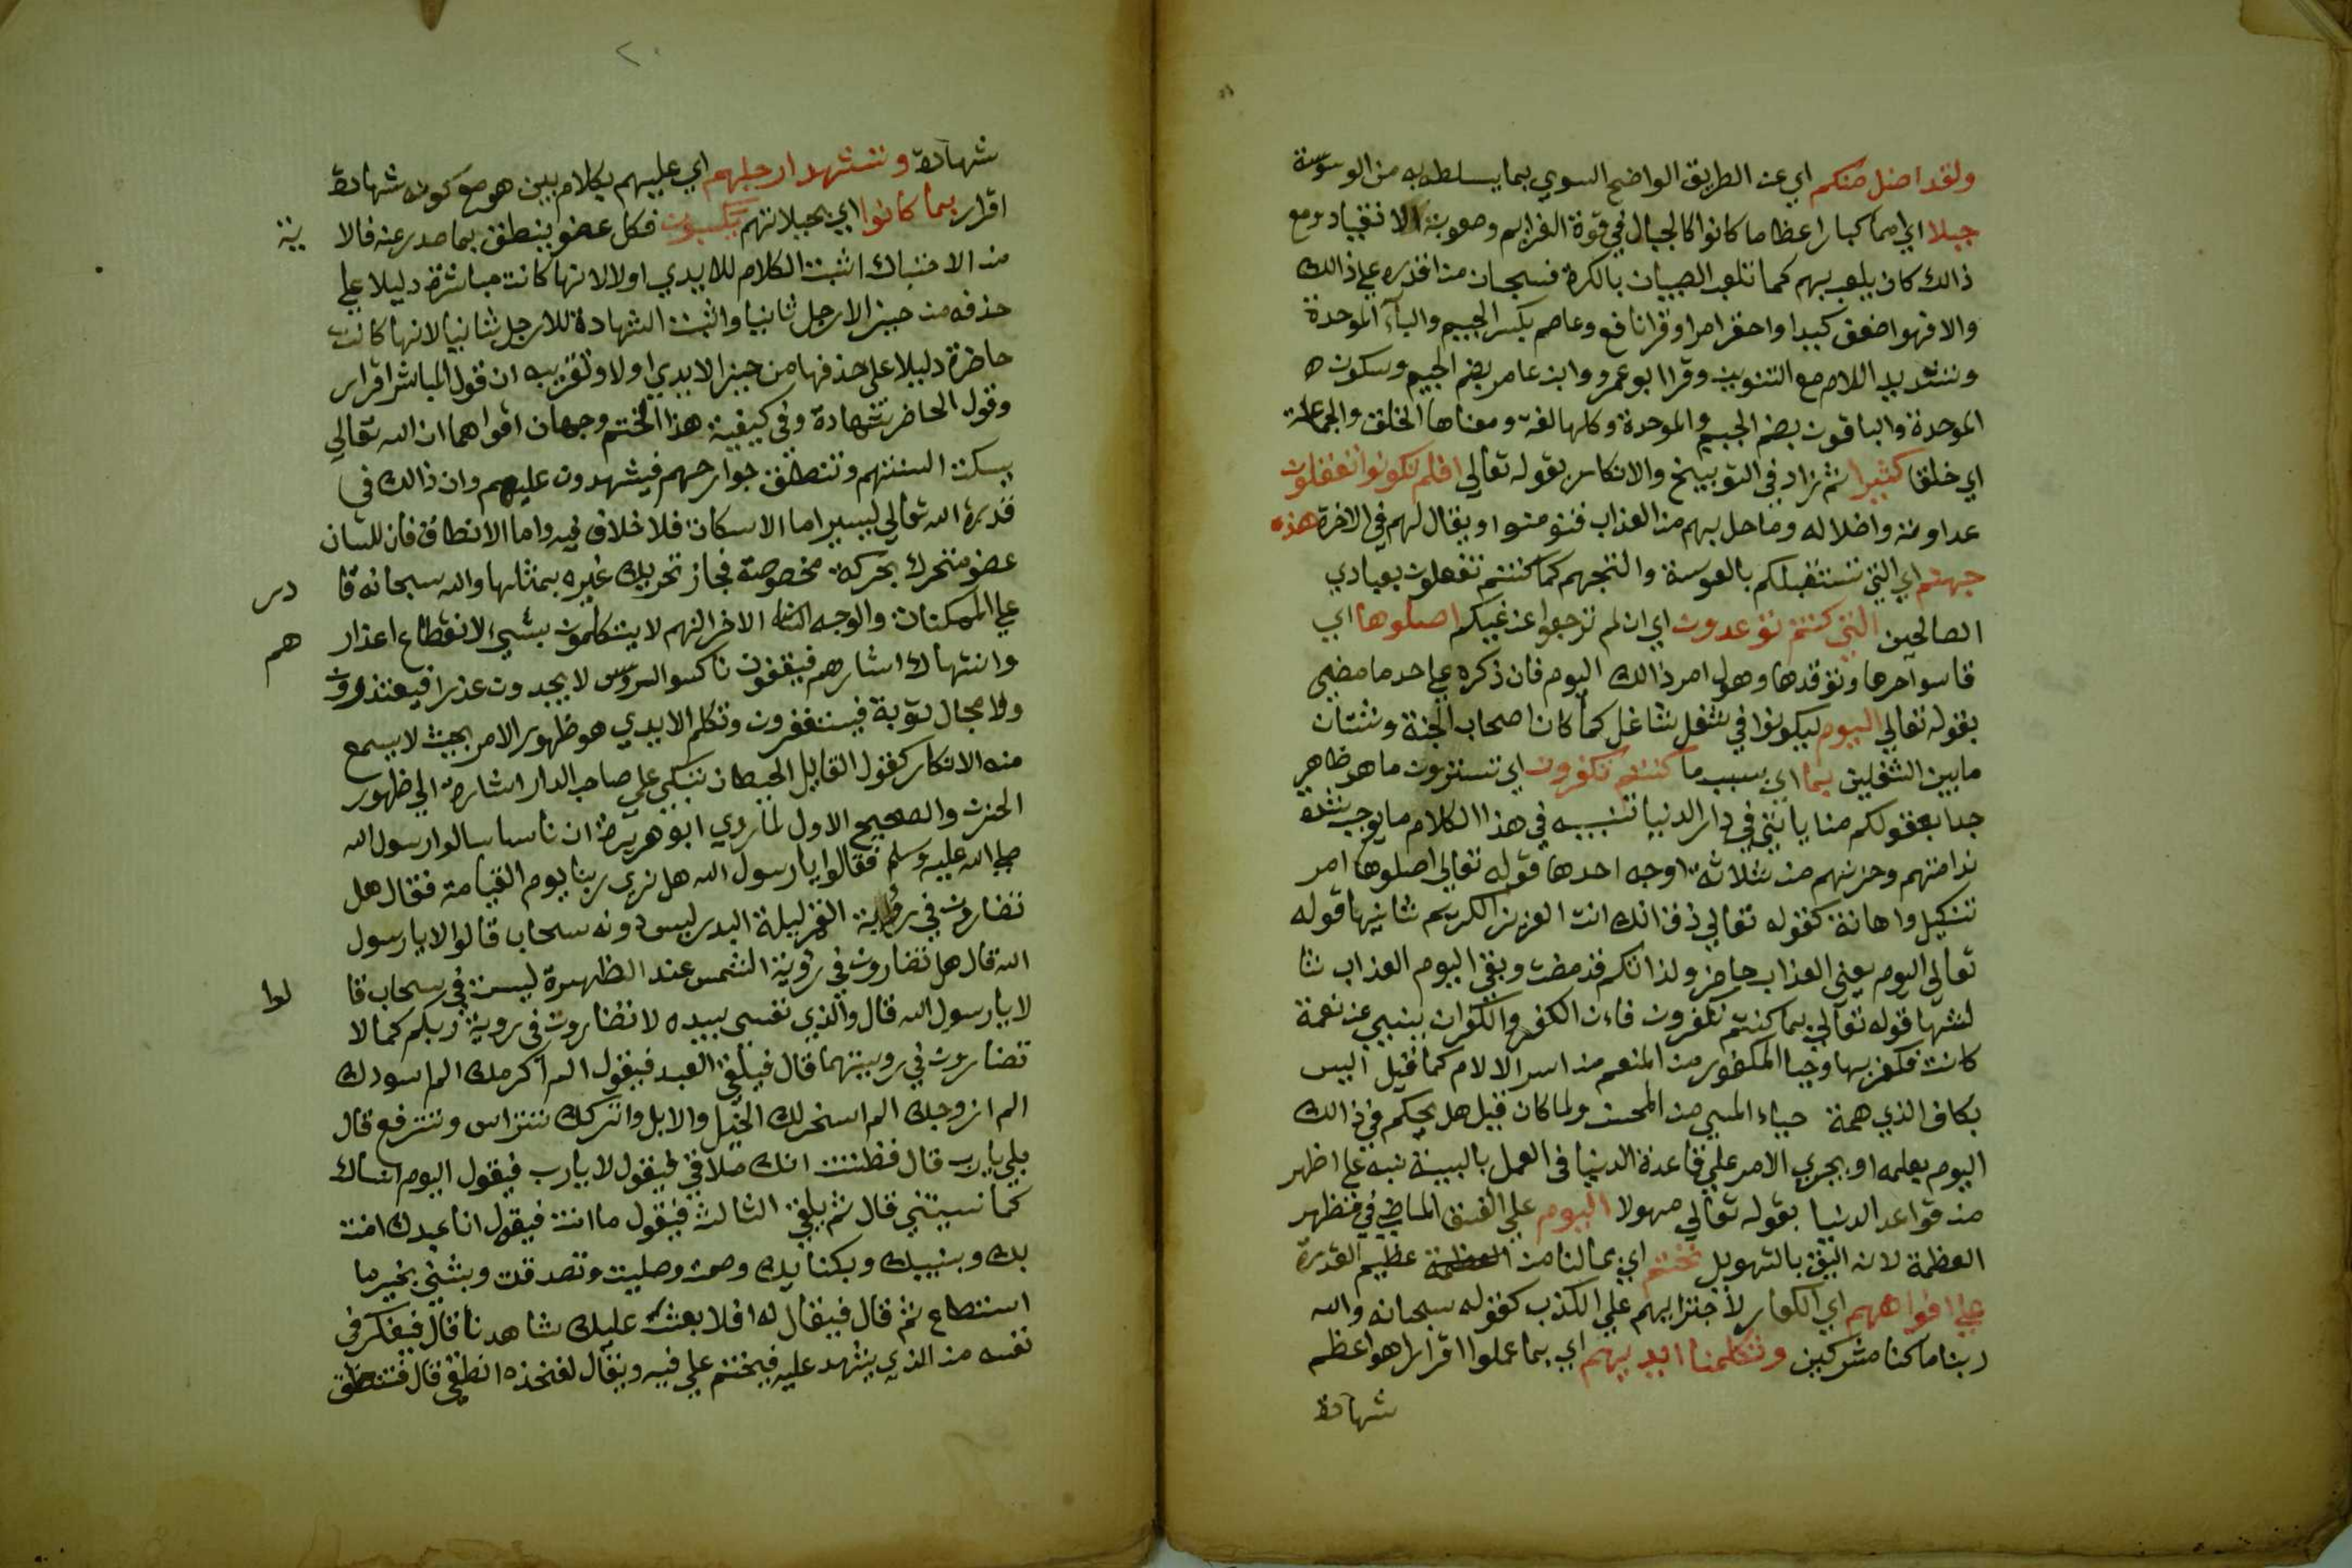 ولقد اضل منكم اي عن الطريق الواضح السوي بما يسلطه به من الوسوسة
جبلا اي امما كبارا عظاما كانوا كالجبال في قوة العزايم وصعوبة الانقياد ومع
ذالك كان يلعب بهم كما تلعب الصبيان بالكرة فسبحان من اقدره علي ذالك
والا فهو اضعف كيدا واحقر امرا وقرا نافع وعاصم بكسر الجيم والبآء الموحدة
وتشديد اللام مع التنوين وقرا ابو عمرو وابن عامر بضم الجيم وسكون
الموحدة والباقون بضم الجيم والموحدة وكلها لغة ومعناها الخلق والجماعة
اي خلقا كثيرا ثم زاد في التوبيخ والانكار بقوله تعالي افلم تكونوا تعقلون
عداوته واضلاله وما حل بهم من العذاب فتومنوا ويقال لهم في الاخرة هذه
جهنم اي التي تستقبلكم بالعوسة والتجهم كما كنتم تفعلون بعبادي
الصالحين التي كنتم توعدون اي ان لم ترجعوا عن غيكم اصلوها اي
قاسوا حرها وتوقدها وهول امر ذالك اليوم فان ذكره علي حد ما مضي
بقوله تعالي اليوم ليكونوا في شغل شاغل كما كان اصحاب الجنة وشتان
مابين الشغلين بما اي بسبب ما كنتم تكفرون اي تسترون ما هو ظاهر
جدا بعقولكم من اياتي في دار الدنيا تنبيه في هذا الكلام ما يوجب شدة
ندامتهم وحزنهم من ثلاثة اوجه احدها قوله تعالي اصلوها امر
تنكيل واهانة كقوله تعالي ذق انك انت العزيز الكريم ثانيها قوله
تعالي اليوم يعني العذاب حاضر ولذاتكم قد مضت وبقي اليوم العذاب ثا
لثها قوله تعالي بما كنتم تكفرون فان الكفر والكفران ينبي عن نعمة
كانت فكفر بها وحيا المكفور من المنعم من اسر الالام كما قيل اليس
بكاف لذي همة حياء المسي من المحسن ولما كان قيل هل يحكم في ذالك
اليوم بعلمه او يجري الامر علي قاعدة الدنيا في العمل بالبينة نبه علي اظهر
من قواعد الدنيا بقوله تعالي مهولا اليوم علي النسق الماضي في مظهر
العظمة لانه اليق بالتهويل نختم اي بما لنا من العظمة عظيم القدرة
علي افواههم اي الكفار لاجترايهم علي الكذب كقوله سبحانه والله
ربنا ما كنا مشركين وتكلمنا ايديهم اي بما عملوا اقرارا هو اعظم
شهادة
شهادة وتشهد ارجلهم اي عليهم بكلام بين هو مع كونه شهادة
اقرار بما كانوا اي بجبلاتهم يكسبون فكل عضو ينطق بما صدر عنه فالا ية
من الاحتباك اثبت الكلام للايدي اولا لانها كانت مباشرة دليلا علي
حذفه من حيز الارجل ثانيا واثبت الشهادة للارجل ثانيا لانها كانت
حاضرة دليلا علي حذفها من حيز الايدي اولا وتقريبه ان قول المباشر اقرار
وقول الحاضر شهادة وفي كيفية هذا الختم وجهان اقواهما ان الله تعالي
يسكت السنتهم وتنطق جوارحهم فيشهدون عليهم وان ذالك في
قدرة الله تعالي يسير اما الاسكات فلا خلاف فيه واما الانطاق فان اللسان
عضو متحرك بحركة مخصوصة فجاز تحريك غيره بمثلها والله سبحانه قا در
علي الممكنات والوجه الثاني الاخر انهم لا يتكلمون بشيء لانقطاع اعذار هم
وانتهاك استارهم فيقفون ناكسوا الروس لا يجدون عذرا فيعتذرون
ولا مجال توبة فيستغفرون وتكلم الايدي هو ظهور الامر بحيث لا يسمع
منه الانكار كقول القايل الحيطان تبكي علي صاحب الدار اشارة الي ظهور
الحزن والصحيح الاول لما روي ابو هريرة ان ناسا سالوا رسول الله
صلي الله عليه وسلم فقالوا يا رسول الله هل نري ربنا يوم القيامة فقال هل
تضارون في رؤية القمر ليلة البدر ليس دونه سحاب قالوا لا يارسول
الله قال هل تضارون في رؤية الشمس عند الظهيرة ليست في سحاب قا لوا
لا يارسول الله قال والذي نفسي بيده لا تضارون في روية ربكم كما لا
تضارون في رويتهما قال فيلقي العبد فيقول الم اكرمك الم اسودك
الم ازوجك الم اسخر لك الخيل والابل واتركك تتراس وتترفع قال
بلي يا رب قال فظننت انك ملاقي فيقول لا يارب فيقول اليوم انساك
كما نسيتني قال ثم يلقي الثالث فيقول ما انت فيقول انا عبدك امنت
بك وبنبيك وبكتابك وصمت وصليت وتصدقت ويثني بخير ما
استطاع ثم قال فيقال له افلا نبعث عليك شاهدنا قال فيفكر في
نفسه من الذي يشهد عليه فيختم علي فيه ويقال لفخذه انطقي قال فتنطق